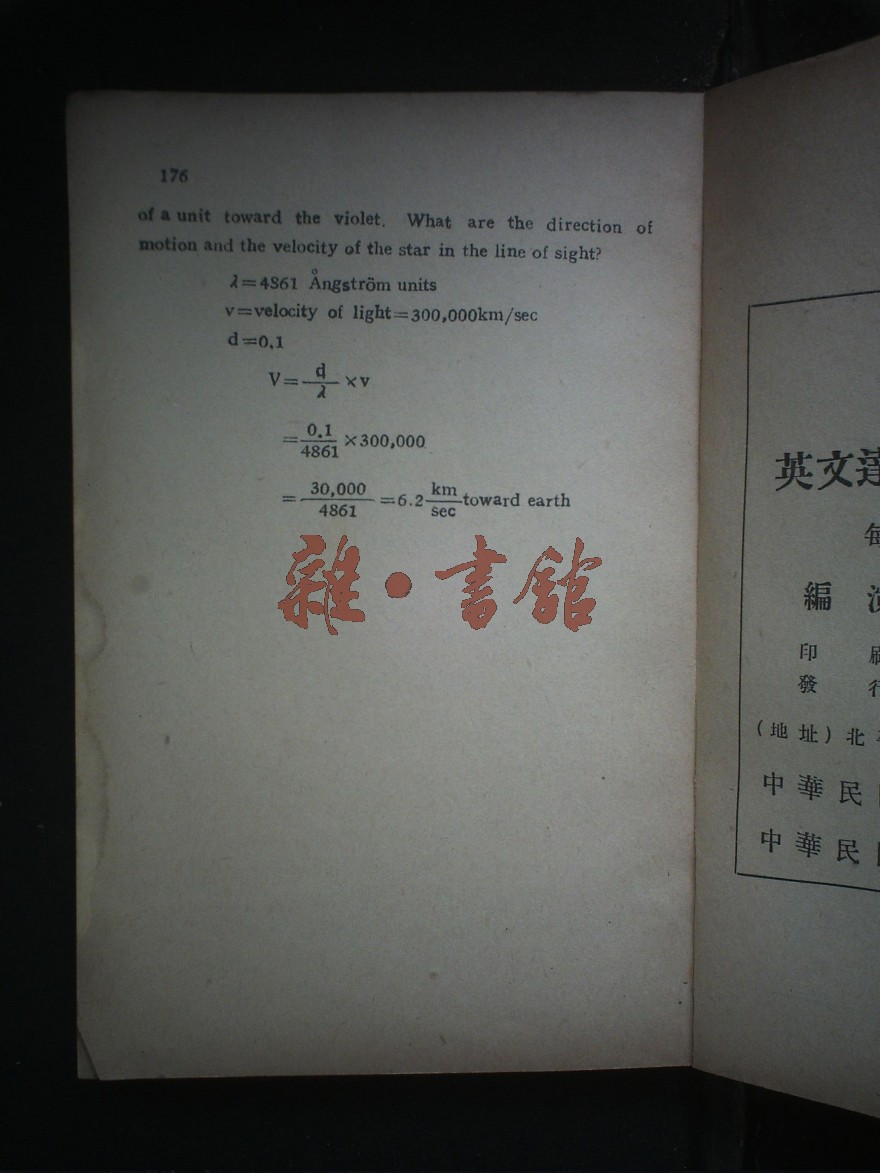 176
of a unit toward the violet. What are the direction of
motion and the velocity of the star in the line of sight?
λ=4861 Ångström units
v=velocity of light=300,000km/sec
d=0.1
V= d/λ ×v
= 0.1/4861 ×300,000
= 30,000/4861 =6.2 km/sec toward earth
雜·書館
英文達
編
印
發
(地址)北
中華民
中華民